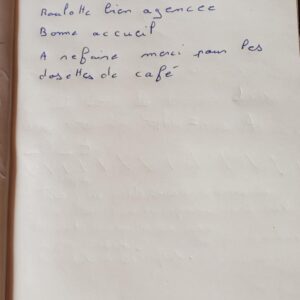 Roulotte bien agencée
Bonne accueil
A refaire merci pour les
dosettes de café